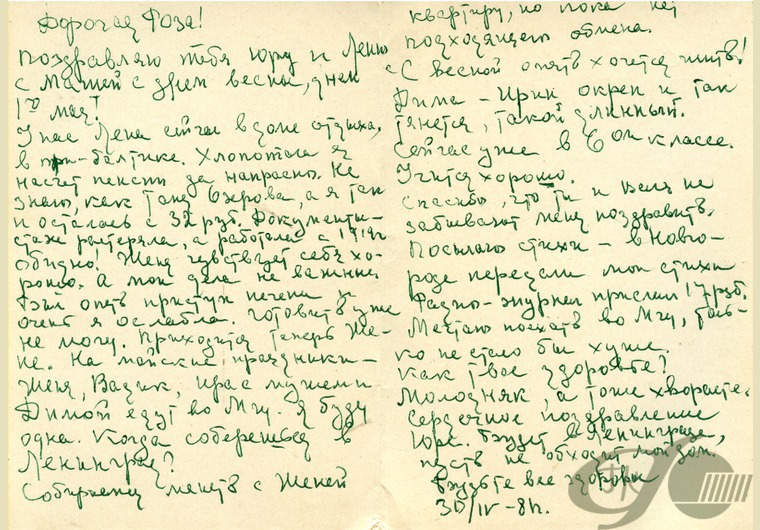 Дорогая Роза!
поздравляю тебя Юру и Лёню
с Машей с днем весны, днем
1го мая!
У нас Лена сейчас в доме отдыха,
в при-балтике. Хлопотала я
насчет пенсии да напрасно. Не
знаю, как Таня а я так
и осталась с 32 руб. Документы
стаже растеряла, а работала с 1919г
обидно! Женя чувствует себя хо-
рошо. А мои дела не важнные
был опять приступ печени и
очень я ослабла. Готовить уже
не могу. Приходится теперь Же-
не. На майские праздники –
Женя, Вадик, Ира с мужем и
Димой едут во Мгу. Я буду
одна. Когда соберешься в
Ленинград?
Собираемся менять с Женей
квартиру, но пока нет
подходящего обмена.
С весной опять хочется жить!
Дима – Ирин окреп и так
тянется, такой длинный.
Сейчас уже в 6 ом классе.
Учится хорошо.
Спасибо, что ты и не
забывают меня поздравить.
Посылаю стихи – в Новго-
роде передали мои стихи
Радио-журнал прислали 17 руб.
Мечтаю поехать во Мгу, толь-
ко не стало бы хуже.
Как твое здоровье?
Молодняк, а тоже хвораете.
Сердечное поздравление
Юре. Будет в Ленинграде,
пусть не обходит мой дом.
Будьте все здоровы
30/IV – 81г.